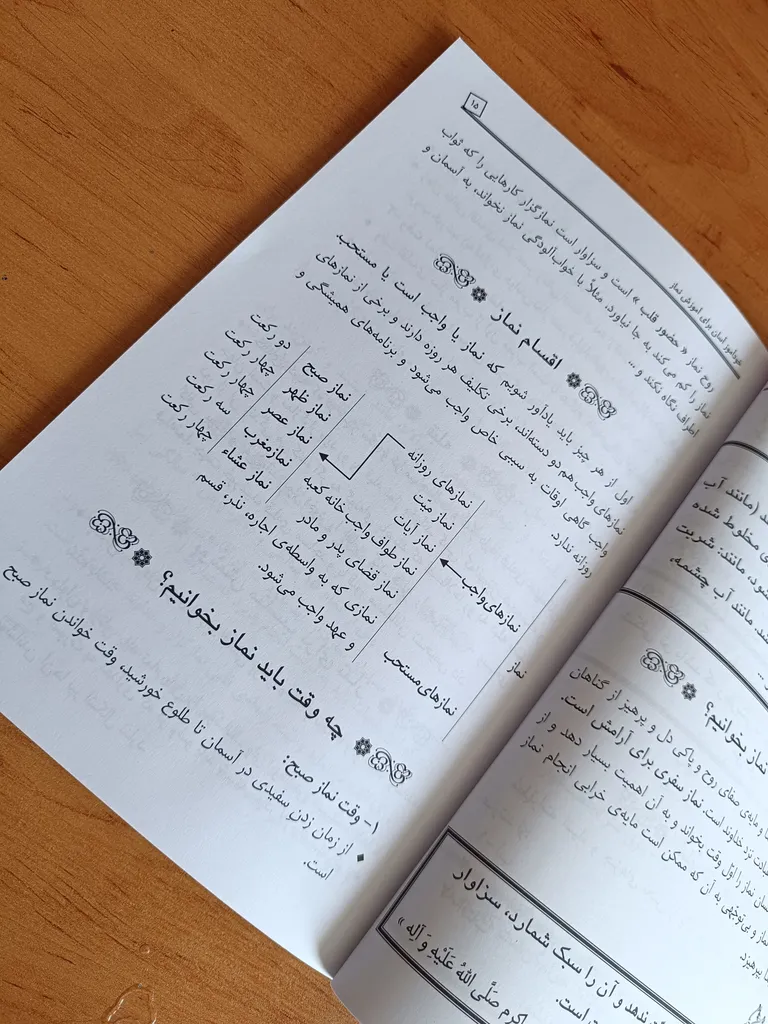 ۱۵
خودآموز آسان برای آموزش نماز
روح نماز « حضور قلب » است و سزاوار است نمازگزار کارهایی را که ثواب
نماز را کم می کند به جا نیاورد، مثلاً با خواب‌آلودگی نماز نخواند، به آسمان و
اطراف نگاه نکند و ...
اقسام نماز
اول از هر چیز باید یادآور شویم که نماز یا واجب است یا مستحب.
نمازهای واجب هم دو دسته‌اند، برخی تکلیف هر روزه دارند و برخی از نمازهای
واجب گاهی اوقات به سببی خاص واجب می‌شود و برنامه‌های همیشگی و
روزانه ندارد.
نماز
نمازهای واجب
نمازهای مستحب
نمازهای روزانه
نماز میّت
نماز آیات
نماز طواف واجب خانه کعبه
نماز قضای پدر و مادر
نمازی که به واسطه‌ی اجاره، نذر، قسم
و عهد واجب می‌شود.
نماز صبح دو رکعت
نماز ظهر چهار رکعت
نماز عصر چهار رکعت
نماز مغرب سه رکعت
نماز عشاء چهار رکعت
چه وقت باید نماز بخوانیم؟
۱- وقت نماز صبح:
از زمان زدن سفیدی در آسمان تا طلوع خورشید، وقت خواندن نماز صبح
است.
(مانند آب
مخلوط شده
مانند: شربت
مانند آب چشمه،
نماز بخوانیم؟
و مایه‌ی صفای روح و پاکی دل و پرهیز از گناهان
نزد خداوند است. نماز سفری برای آرامش است.
نماز را اوّل وقت بخواند و به آن اهمیت بسیار دهد و از
و بی‌توجّهی به آن که ممکن است مایه‌ی خرابی انجام نماز
بپرهیزد
ندهد و آن را سبک شمارد، سزاوار
است.
اکرم صَلَّی اللهُ عَلَیْهِ وَ آلِهِ »